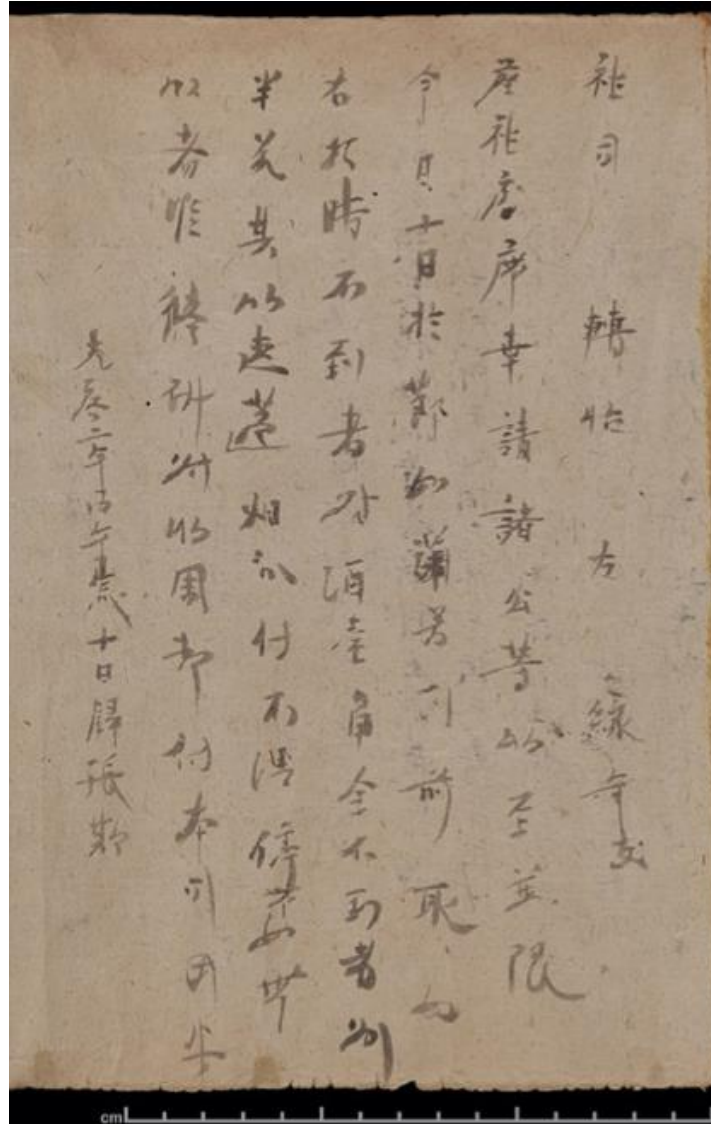 社司 轉帖 右緣年支
座社局席幸請諸公等帖至並限
今月十日於節加蘭若門前取
右於時不到者罰酒壹角全不到者罰
半瓮其帖速遞相分付不得停
帖者准條科罰帖周却付本司用告
光啓二年丙午歲十日歸張欺